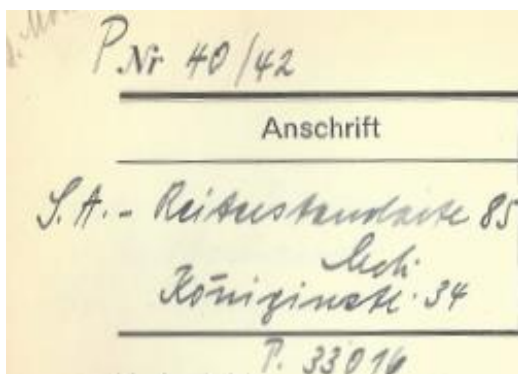 P Nr 40/42
Anschrift
S.A. - Reiterstandarte 85
Mch.
Königinstr. 34
T. 33016